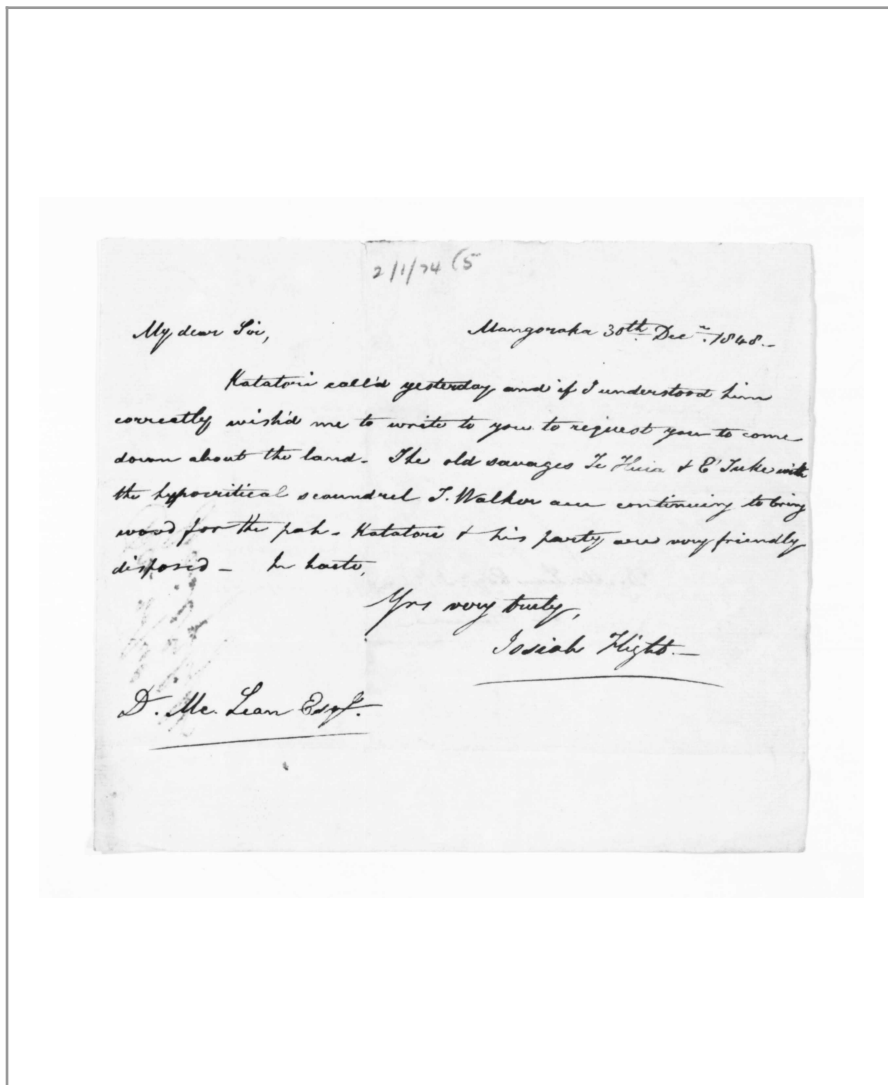 2/1/74 (5
My dear Sir, Mangoraka 30th. Decr. 1848.-
Katatori call'd yesterday and if I understood him
correctly wish'd me to write to you to request you to come
down about the land. The old savages Te Huia & E' Tuke with
the hypocritical scoundrel T. Walker are continuing to bring
wood for the pah. Katatori & his party are very friendly
disposed - In haste,
Yrs very truly,
Josiah Flight.-
D. Mc. Lean Esqr.